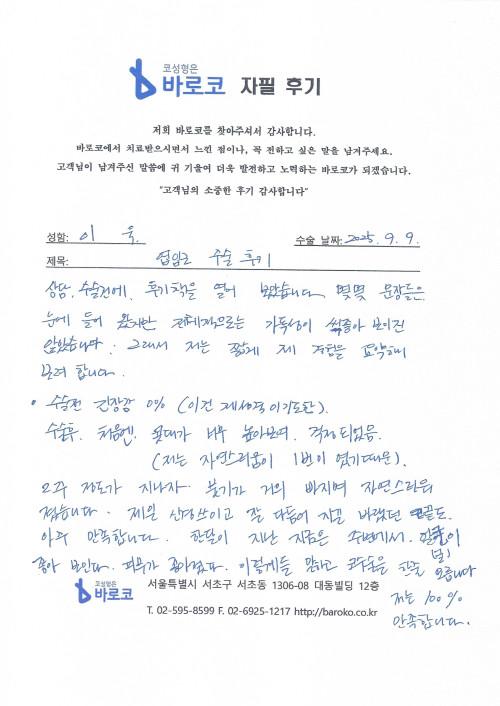 코성형은
바로코 자필 후기
저희 바로코를 찾아주셔서 감사합니다.
바로코에서 치료받으시면서 느낀 점이나, 꼭 전하고 싶은 말을 남겨주세요.
고객님이 남겨주신 말씀에 귀 기울여 더욱 발전하고 노력하는 바로코가 되겠습니다.
"고객님의 소중한 후기 감사합니다"
성함: 이 욱. 수술 날짜: 2025. 9. 9.
제목: 수술 후기
상담, 수술전에, 후기책을 열어 보았습니다. 몇몇 문장들은
눈에 들어 왔지만 전체적으로는 가독성이 썩좋아 보이진
않았습니다. 그래서 저는 짧게 제 경험을 요약해
보려 합니다.
• 수술전 긴장감 0% (이건 제성격이기도함).
수술후. 처음엔. 콧대가 너무 높아보여. 걱정되었음.
(저는 자연스러움이 1번이 였기때문).
2주 정도가 지나자. 붓기가 거의 빠지며 자연스러워
졌습니다. 제일 신경쓰이고 잘 다듬어 지길 바랬던 코끝도.
아주 만족합니다. 한달이 지난 지금은 주변에서.
좋아 보인다. 피부가 좋아졌다. 이렇게들 말하고 코수술을 한줄
모릅니다
저는 100%
만족합니다.
코성형은
바로코
서울특별시 서초구 서초동 1306-08 대동빌딩 12층
T. 02-595-8599 F. 02-6925-1217 http://baroko.co.kr